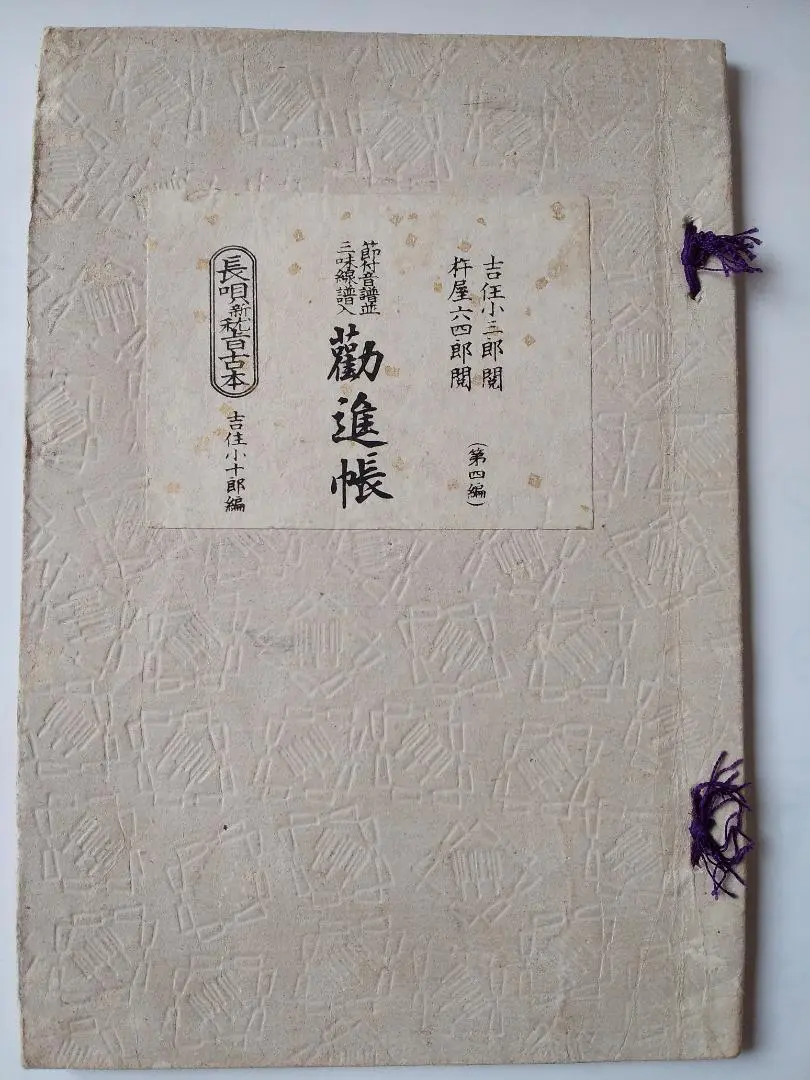 吉住小三郎閲
杵屋六四郎閲
(第四編)
節付音譜並
三味線譜入
勸進帳
長唄新稽古本
吉住小十郎編